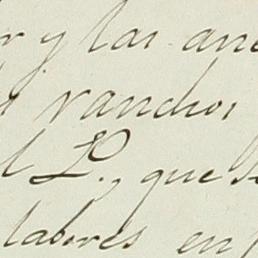 y las
ranchos
L., que
labores en